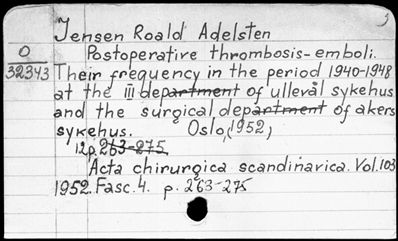 3
Jensen Roald Adelsten
O
32343
Postoperative thrombosis-emboli.
Their frequency in the period 1940-1948
at the III department of ullevål sykehus
and the surgical department of akers
sykehus. Oslo, 1952,
12p. 263-275,
Acta chirurgica scandinavica. Vol.103
1952. Fasc. 4. p. 263-275